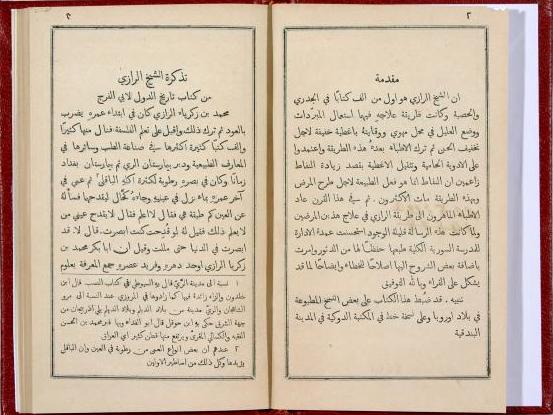 ٢
مقدمة
ان الشيخ الرازي هو اول من الف كتابًا في الجدري
والحصبة وكانت طريقة علاجهِ فيها استعمال المبرّدات
ووضع العليل في محل مهوي ووقايتهُ باغطية خفيفة لاجل
تخفيف الحمى ثم ترك الاطباء بعدهُ هذه الطريقة واعتمدوا
على الادوية الحامية وتثقيل الاغطية بقصد زيادة النفاط
زاعمين ان النفاط انما هو فعل الطبيعة لاجل طرح المرض
وبهذه الطريقة مات الاكثرون. ثم في هذا القرن عاد
الاطباء الماهرون الى طريقة الرازي في علاج هذين المرضين
ولما كانت هذه الرسالة قليلة الوجود استحسنت عمدة الادارة
للمدرسة السورية الكلية طبعها حفظًا لها من الدثور وامرت
باضافة بعض الشروح اليها اصلاحًا للخطاء وايضاحًا لما قد
يشكل على القراء وبالله التوفيق
تنبيه. قد ضبط هذا الكتاب على بعض النسخ المطبوعة
في بلاد اوروبا وعلى نسخة خط في المكتبة الدوكية في المدينة
البندقية
٣
تذكرة الشيخ الرازي
من كتاب تاريخ الدول لابي الفرج
محمد بن زكرياء الرازي كان في ابتداء عمرهِ يضرب
بالعود ثم ترك ذلك واقبل على تعلم الفلسفة فنال منها كثيرًا
والف كتبًا كثيرة اكثرها في صناعة الطب وسائرها في
المعارف الطبيعية ودبر بيمارستان الري ثم بيمارستان بغداد
زمانًا وكان في بصرهِ رطوبة لكثرة اكلهِ الباقلي ثم عمي في
آخر عمرهِ بماء نزل في عينيهِ وجاءهُ كحّال ليقدحهما فسألهُ
عن العين كم طبقة هي فقال لا اعلم فقال لا يقدح عيني من
لا يعلم ذلك فقيل لهُ لو قدحت كنت ابصرت. قال لا قد
ابصرت في الدنيا حتى مللت وقيل ان ابا بكر محمد بن
زكريا الرازي اوحد دهرهِ وفريد عصرهِ جمع المعرفة بعلوم
١ نسبة الى مدينة الريّ قال والسيوطي في كتاب النسب. قال ابن
خلدون والزاء زائدة فيها كما زادوها في المروزي عند النسبة الى مرو
الشاهجان والريّ مدينة من بلاد الديلم وبلاد الديلم بلي اذربيجان من
جهة الشرق حكى بهِ ابن حوقل قال ابو الفداء وبها قبر محمد بن الحسن
الفقيه والكسائي المقرئ ويرتفع منها قطن كثير الى العراق
٢ عندهم ان بعض انواع العمى من رطوبة في العين وان الباقلي
يزيدها وكل ذلك من اساطير الاولين